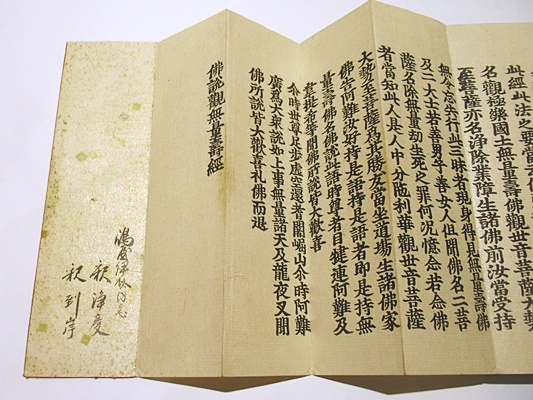 此經此法之要當云
名觀極樂國土無量壽佛觀世音菩薩大勢
至菩薩亦名淨除業障生諸佛前汝當受持
無令忘失行此三昧者現身得見無量壽佛
及二大士若善男子善女人但聞佛名二菩
薩名除無量劫生死之罪何況憶念若念佛
者當知此人是人中分陁利華觀世音菩薩
大勢至菩薩爲其勝友當坐道場生諸佛家
佛告阿難汝好持是語持是語者即是持無
量壽佛名佛說此語時尊者目犍連阿難及
韋提希等聞佛所說皆大歡喜
尒時世尊足步虛空還耆闍崛山尒時阿難
廣爲大衆說如上事無量諸天及龍夜叉聞
佛所說皆大歡喜礼佛而退
佛說觀無量壽經
釈淨慶
釈到岸